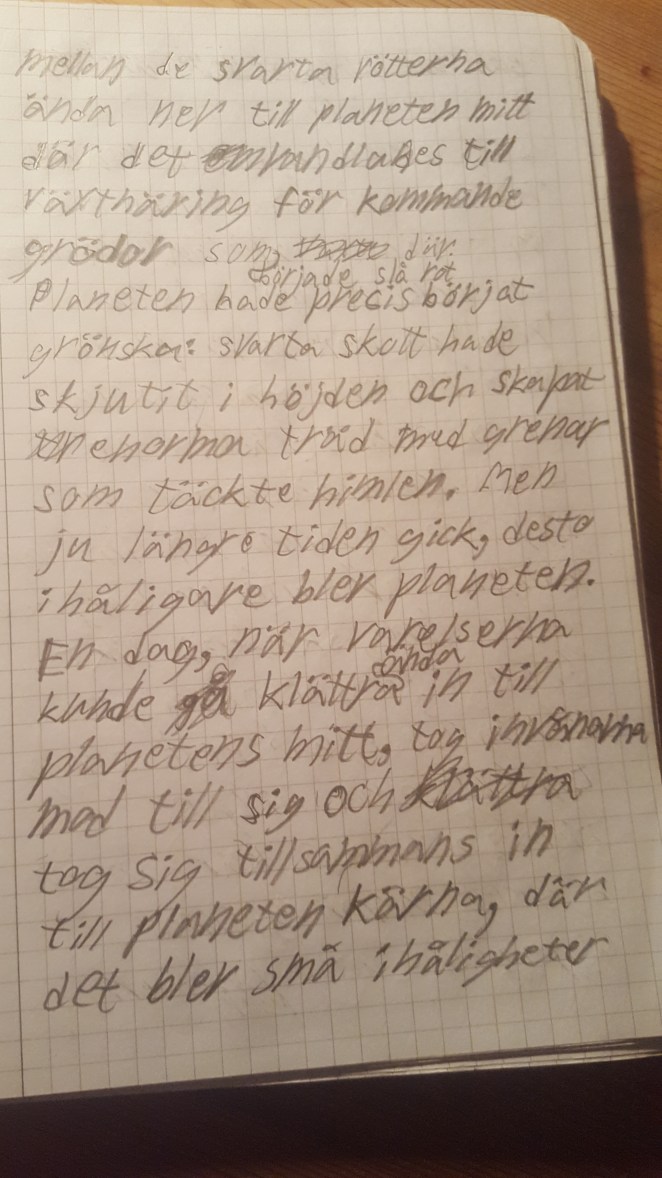 mellan de svarta rötterna
ända ner till planeten mitt
där det omvandlades till
växtnäring för kommande
grödor som där
började slå rot
Planeten hade precis börjat
grönska: svarta skott hade
skjutit i höjden och skapat
enorma träd med grenar
som täckte himlen. Men
ju längre tiden gick, desto
ihåligare blev planeten.
En dag, när varelserna
ända
kunde gå klättra in till
planetens mitt, tog invånarna
mod till sig och klättra
tog sig tillsammans in
till planeten kärna, där
det blev små ihåligheter